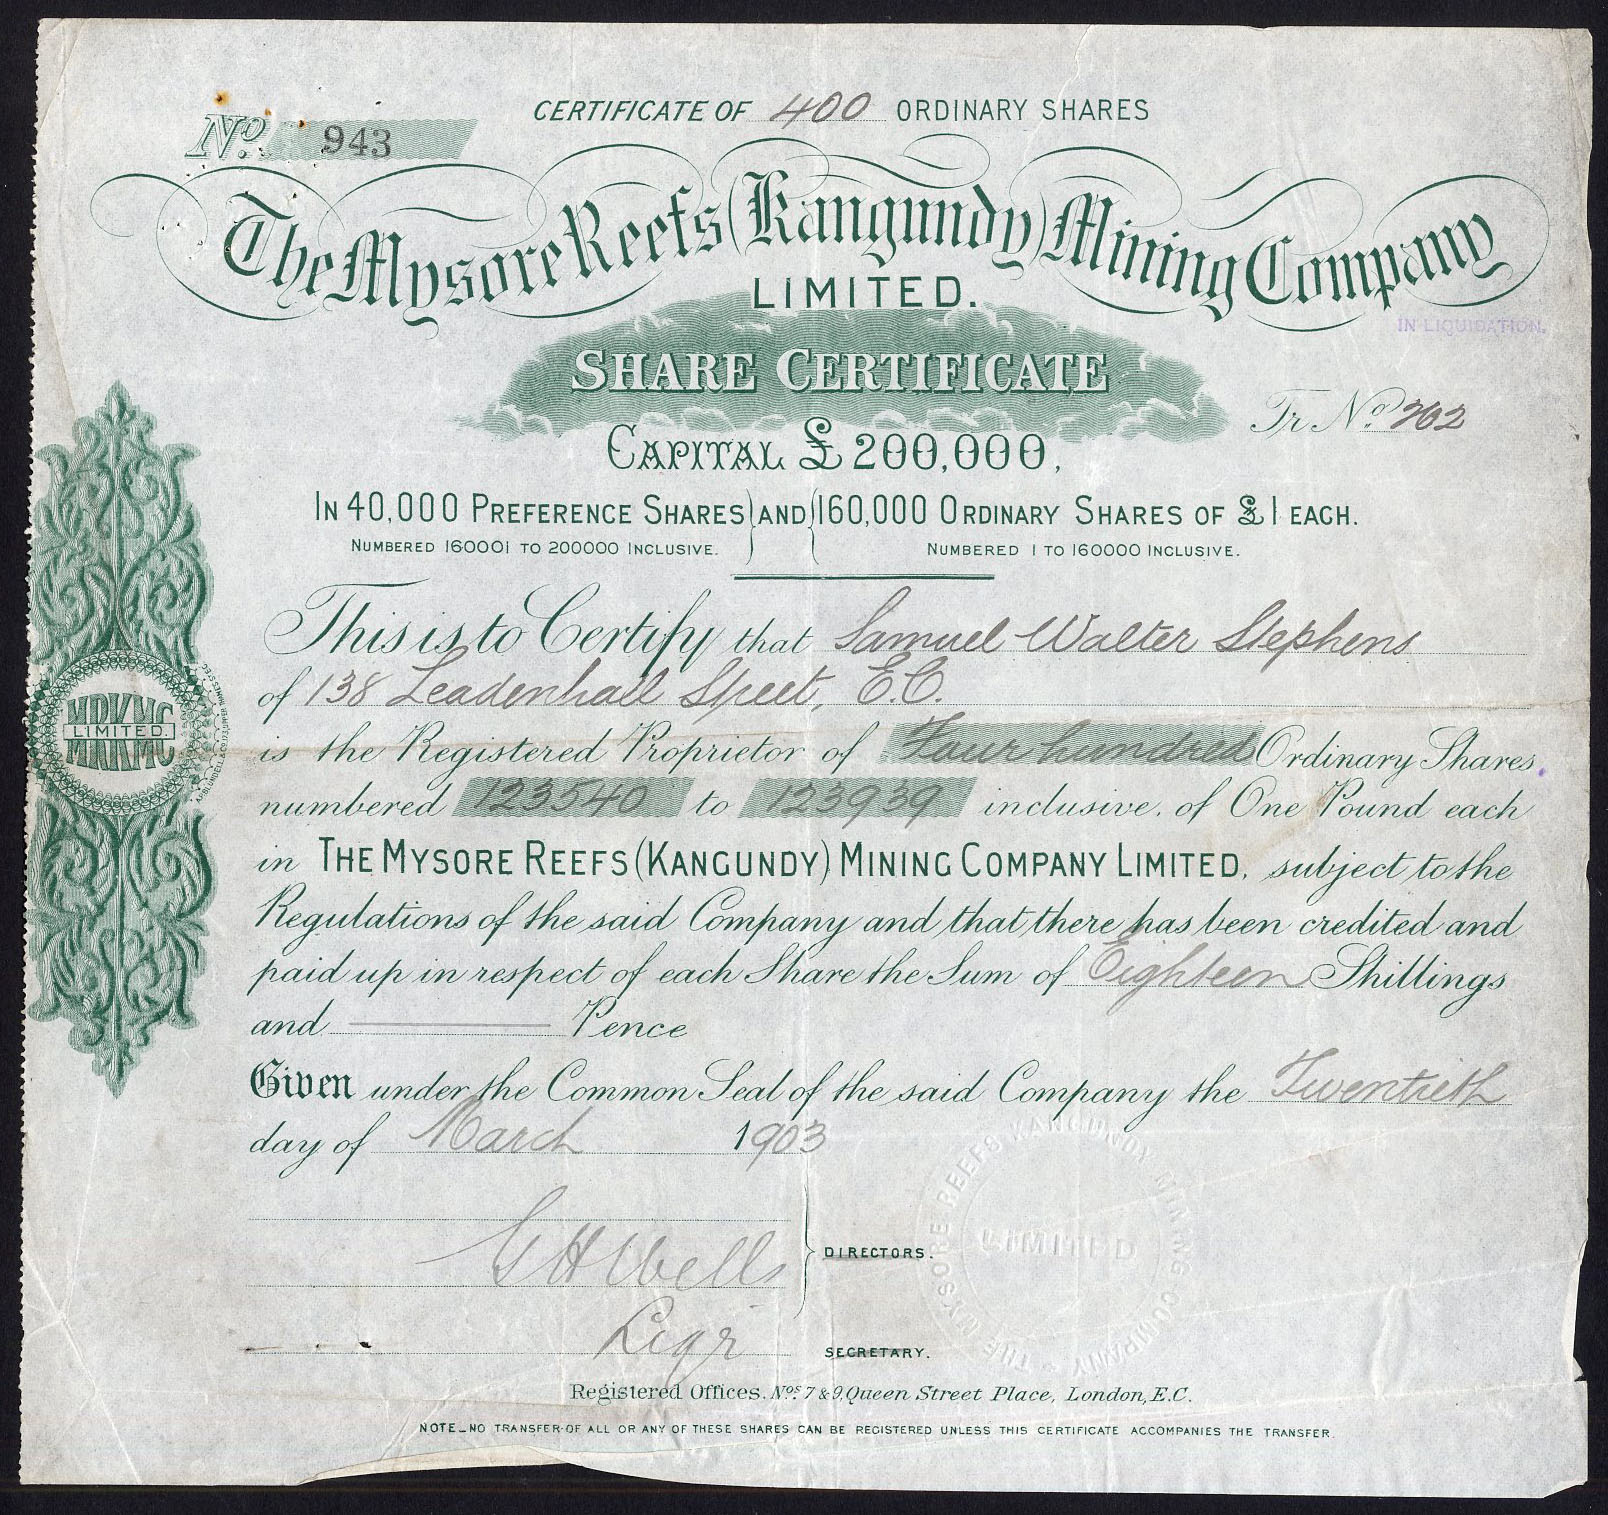 CERTIFICATE OF 400 ORDINARY SHARES
No. 943
The Mysore Reefs (Kangundy) Mining Company
LIMITED.
IN LIQUIDATION.
SHARE CERTIFICATE
Tr. No. 262
CAPITAL £200,000,
IN 40,000 PREFERENCE SHARES AND 160,000 ORDINARY SHARES OF £1 EACH.
NUMBERED 160001 TO 200000 INCLUSIVE. NUMBERED 1 TO 160000 INCLUSIVE.
This is to Certify that Samuel Walter Stephens
of 138 Leadenhall Street, E.C.
is the Registered Proprietor of Four hundred Ordinary Shares
numbered 123540 to 123939 inclusive, of One Pound each
in THE MYSORE REEFS (KANGUNDY) MINING COMPANY LIMITED, subject to the
Regulations of the said Company and that there has been credited and
paid up in respect of each Share the Sum of Eighteen Shillings
and ——— Pence
MRKMC
LIMITED.
MRKMC
Given under the Common Seal of the said Company the Twentieth
day of March 1903
THE MYSORE REEFS KANGUNDY MINING COMPANY
LIMITED
DIRECTORS.
Liqr
SECRETARY.
Registered Offices, Nos. 7 & 9, Queen Street Place, London, E.C.
NOTE_NO TRANSFER OF ALL OR ANY OF THESE SHARES CAN BE REGISTERED UNLESS THIS CERTIFICATE ACCOMPANIES THE TRANSFER.